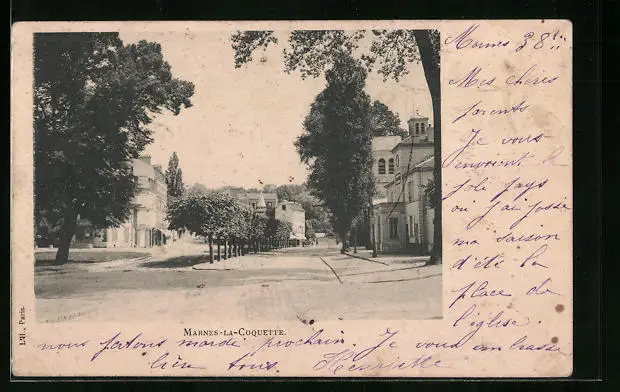 Marnes 28
Mes chères
parents
Je vous
envoient le
joli pays
ou j'ai passé
ma saison
d'été la
place de
l'église.
MARNES-LA-COQUETTE.
L'H., Paris.
nous partons mardi prochain. Je vous embrasse
bien tous. Henriette